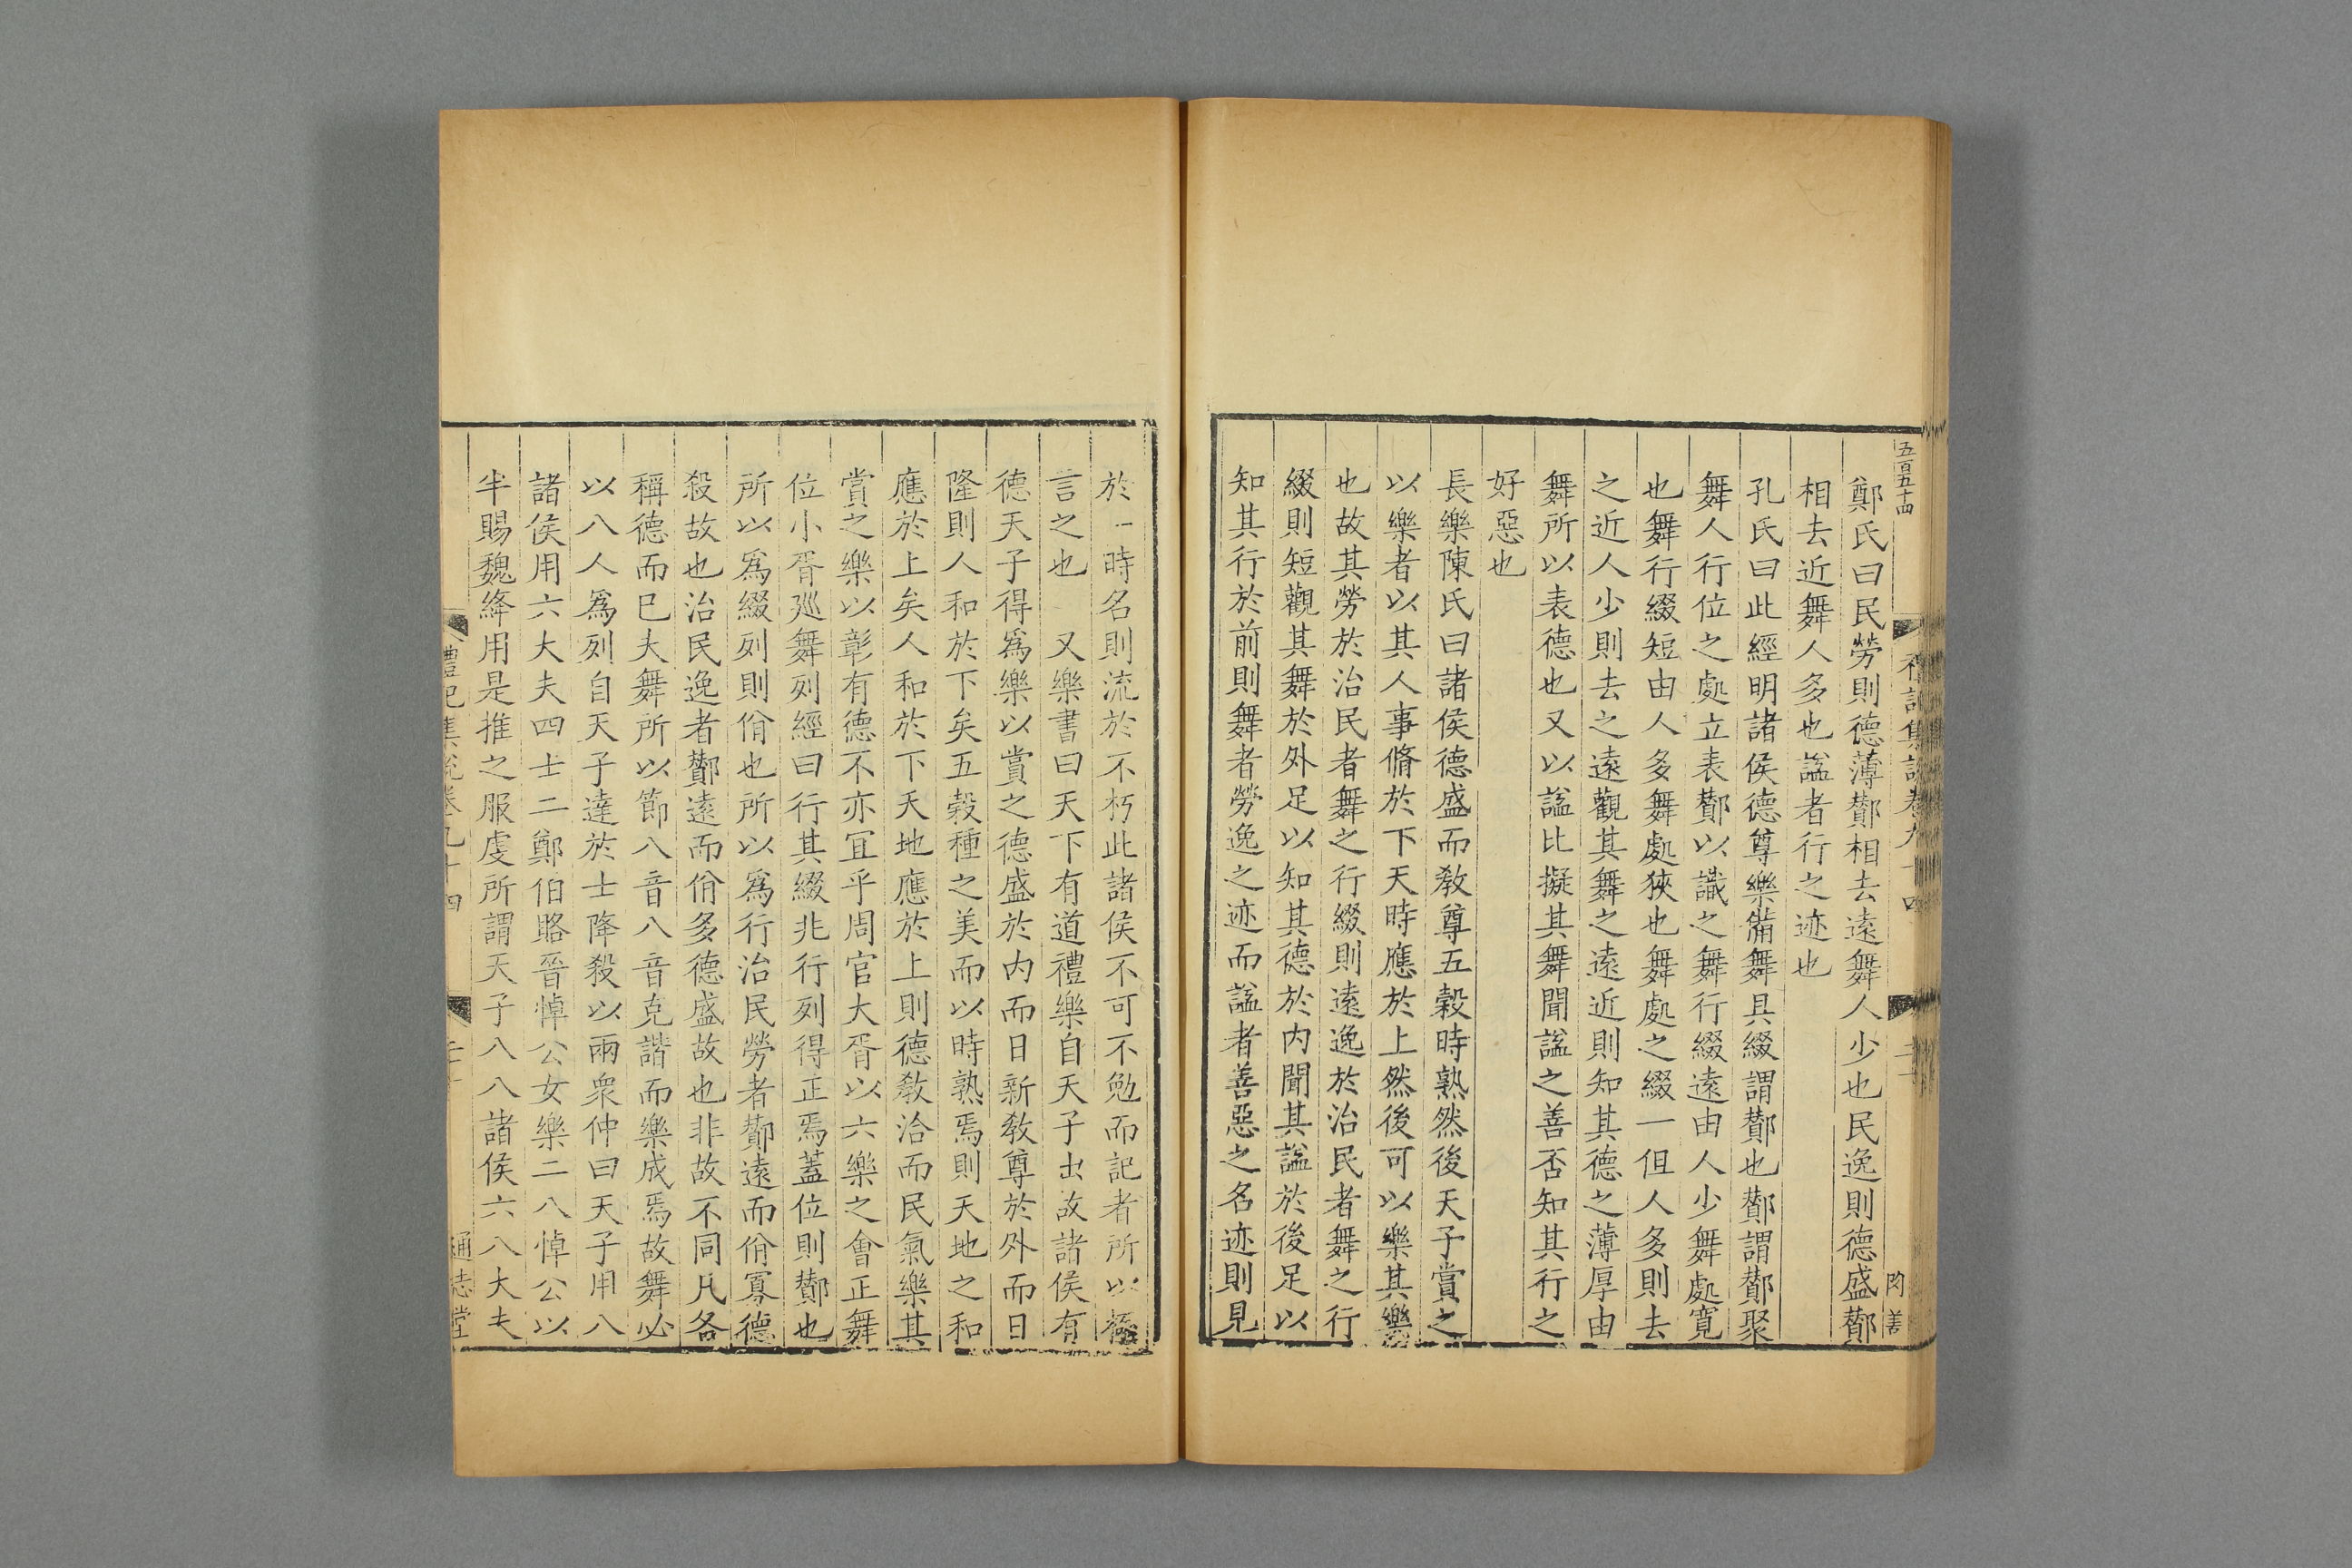 五百五十四
禮記集說卷九十四
鄭氏曰民勞則德薄酇相去遠舞人少也民逸則德盛酇
相去近舞人多也諡者行之迹也
孔氏曰此經明諸侯德尊樂備舞具綴謂酇也酇謂酇聚
舞人行位之處立表酇以識之舞行綴遠由人少舞處寬
也舞行綴短由人多舞處狹也舞處之綴一但人多則去
之近人少則去之遠觀其舞之遠近則知其德之薄厚由
舞所以表德也又以諡比擬其舞聞諡之善否知其行之
好惡也
長樂陳氏曰諸侯德盛而敎尊五穀時熟然後天子賞之
以樂者以其人事脩於下天時應於上然後可以樂其樂
也故其勞於治民者舞之行綴則遠逸於治民者舞之行
綴則短觀其舞於外足以知其德於內聞其諡於後足以
知其行於前則舞者勞逸之迹而諡者善惡之名迹則見
於一時名則流於不朽此諸侯不可不勉而記者所以
言之也 又樂書曰天下有道禮樂自天子出故諸侯有
德天子得爲樂以賞之德盛於內而日新敎尊於外而日
隆則人和於下矣五穀種之美而以時熟焉則天地之和
應於上矣人和於下天地應於上則德敎洽而民氣樂其
賞之樂以彰有德不亦宜乎周官大胥以六樂之會正舞
位小胥廵舞列經曰行其綴兆行列得正焉蓋位則酇也
所以爲綴列則佾也所以爲行治民勞者酇遠而佾寡德
殺故也治民逸者酇遠而佾多德盛故也非故不同凡各
稱德而已夫舞所以節八音八音克諧而樂成焉故舞必
以八人爲列自天子達於士降殺以兩衆仲曰天子用八
諸侯用六大夫四士二鄭伯賂晉悼公女樂二八悼公以
半賜魏絳用是推之服虔所謂天子八八諸侯六八大夫
禮記集說卷九十四
通志堂